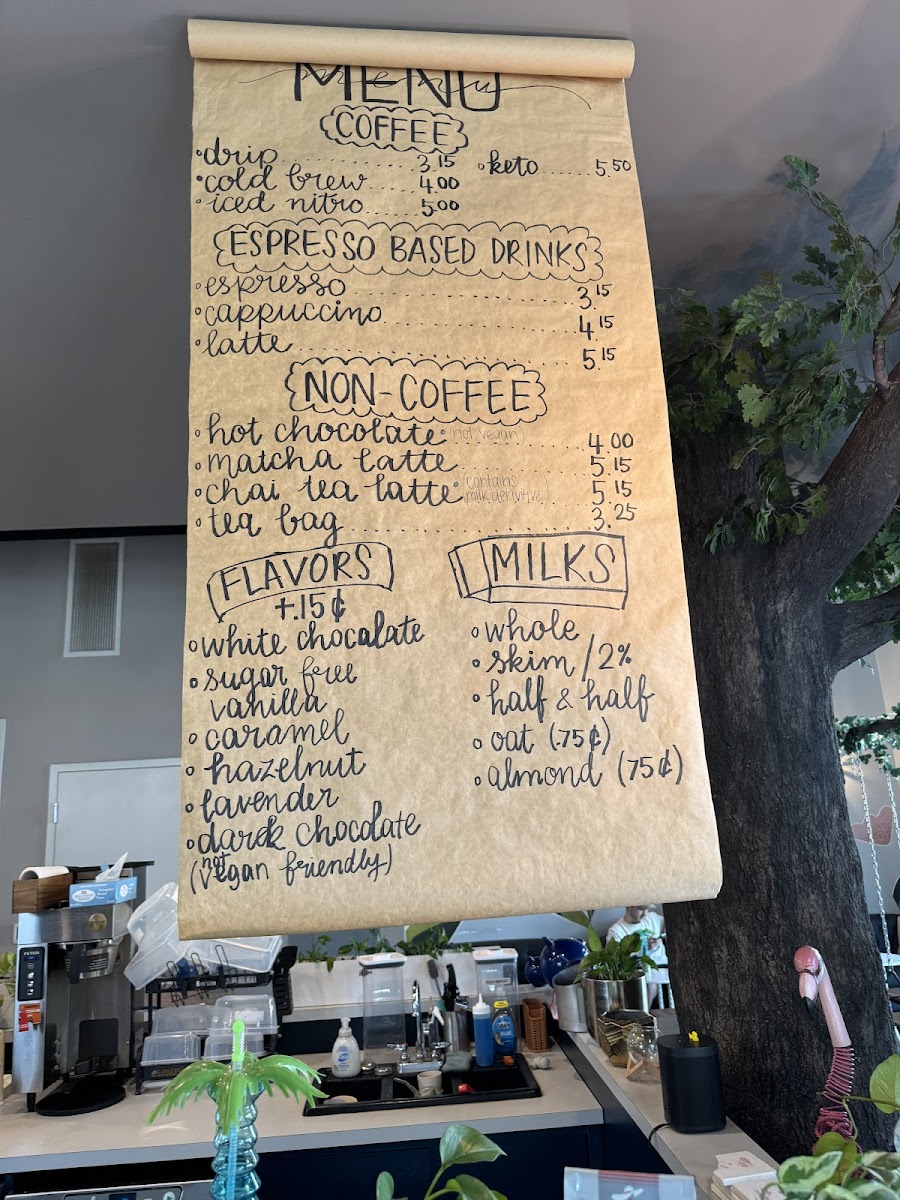 MENU
COFFEE
drip 3.15
cold brew 4.00
iced nitro 5.00
keto 5.50
ESPRESSO BASED DRINKS
espresso 3.15
cappuccino 4.15
latte 5.15
NON-COFFEE
hot chocolate (not vegan) 4.00
matcha latte 5.15
chai tea latte (contains milk derivitive) 5.15
tea bag 3.25
FLAVORS
+.15¢
white chocalate
sugar free
vanilla
caramel
hazelnut
lavender
darek chocolate
(not vegan friendly)
MILKS
whole
skim/2%
half & half
oat (.75¢)
almond (75¢)